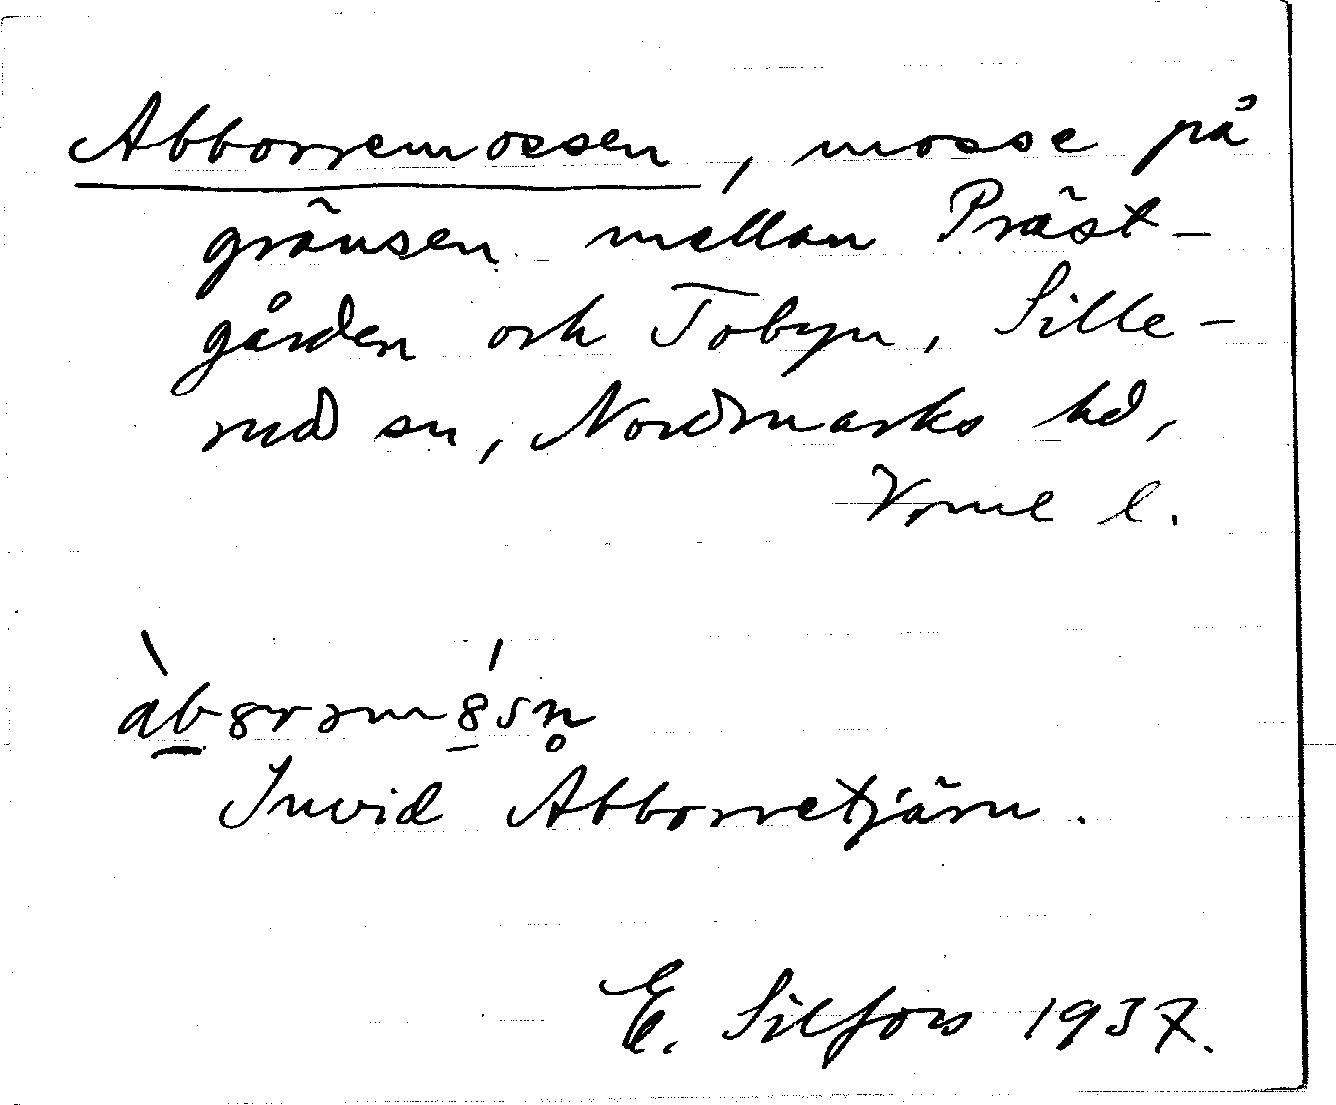 Abborremossen, mosse på
gränsen mellan Präst-
gården och Tobyn, Sille-
rud sn, Nordmarks hd,
Vrml l.
àb̲8rəm8̲́sn̥
Invid Abborretjärn.
E. Silfors 1937.